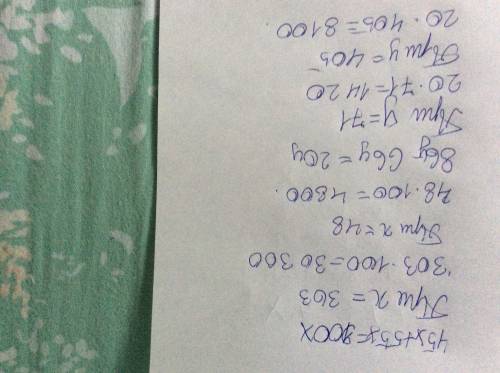 45x+55x=100x
При x = 303
303·100=30 300
При x=48
48·100 = 4800.
86y 66y = 20y
При y=71
20·71=1420
При y=405
20·405=8100.